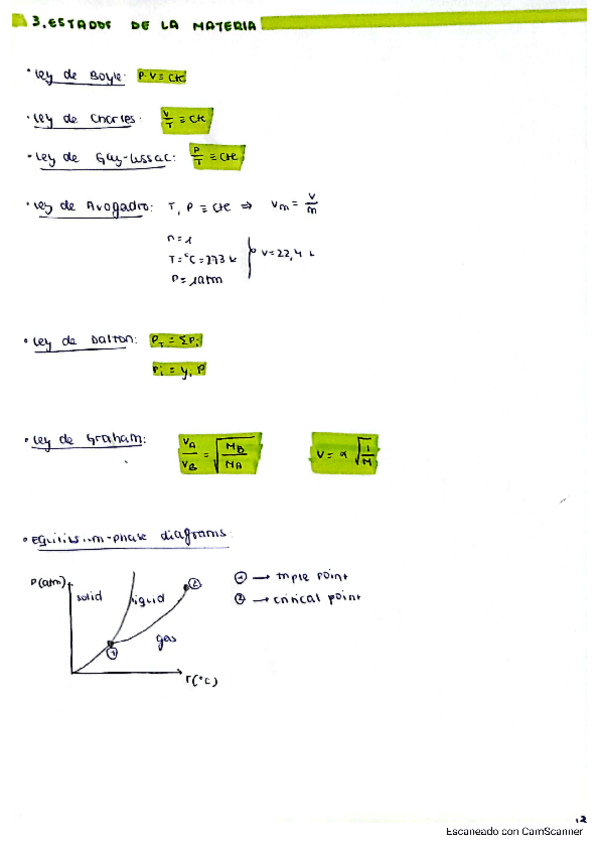 3. ESTADOS DE LA MATERIA
• Ley de Boyle: P·V ≡ cte
• Ley de Charles: V/T ≡ cte
• Ley de Gay-Lussac: P/T ≡ cte
• Ley de Avogadro: T, P ≡ cte ⇒ Vm = V/m
n = 1
T = °C = 273 K
V = 22,4 L
P = 1 atm
• Ley de Dalton: PT = ΣPi
Pi = yi P
• Ley de Graham: VA/VB = √(MB/MA) V = α √(1/M)
• Equilibrium-phase diagrams:
P(atm)
solid liquid ②
① → triple point
② → critical point
gas
①
T(°C)
12
Escaneado con CamScanner